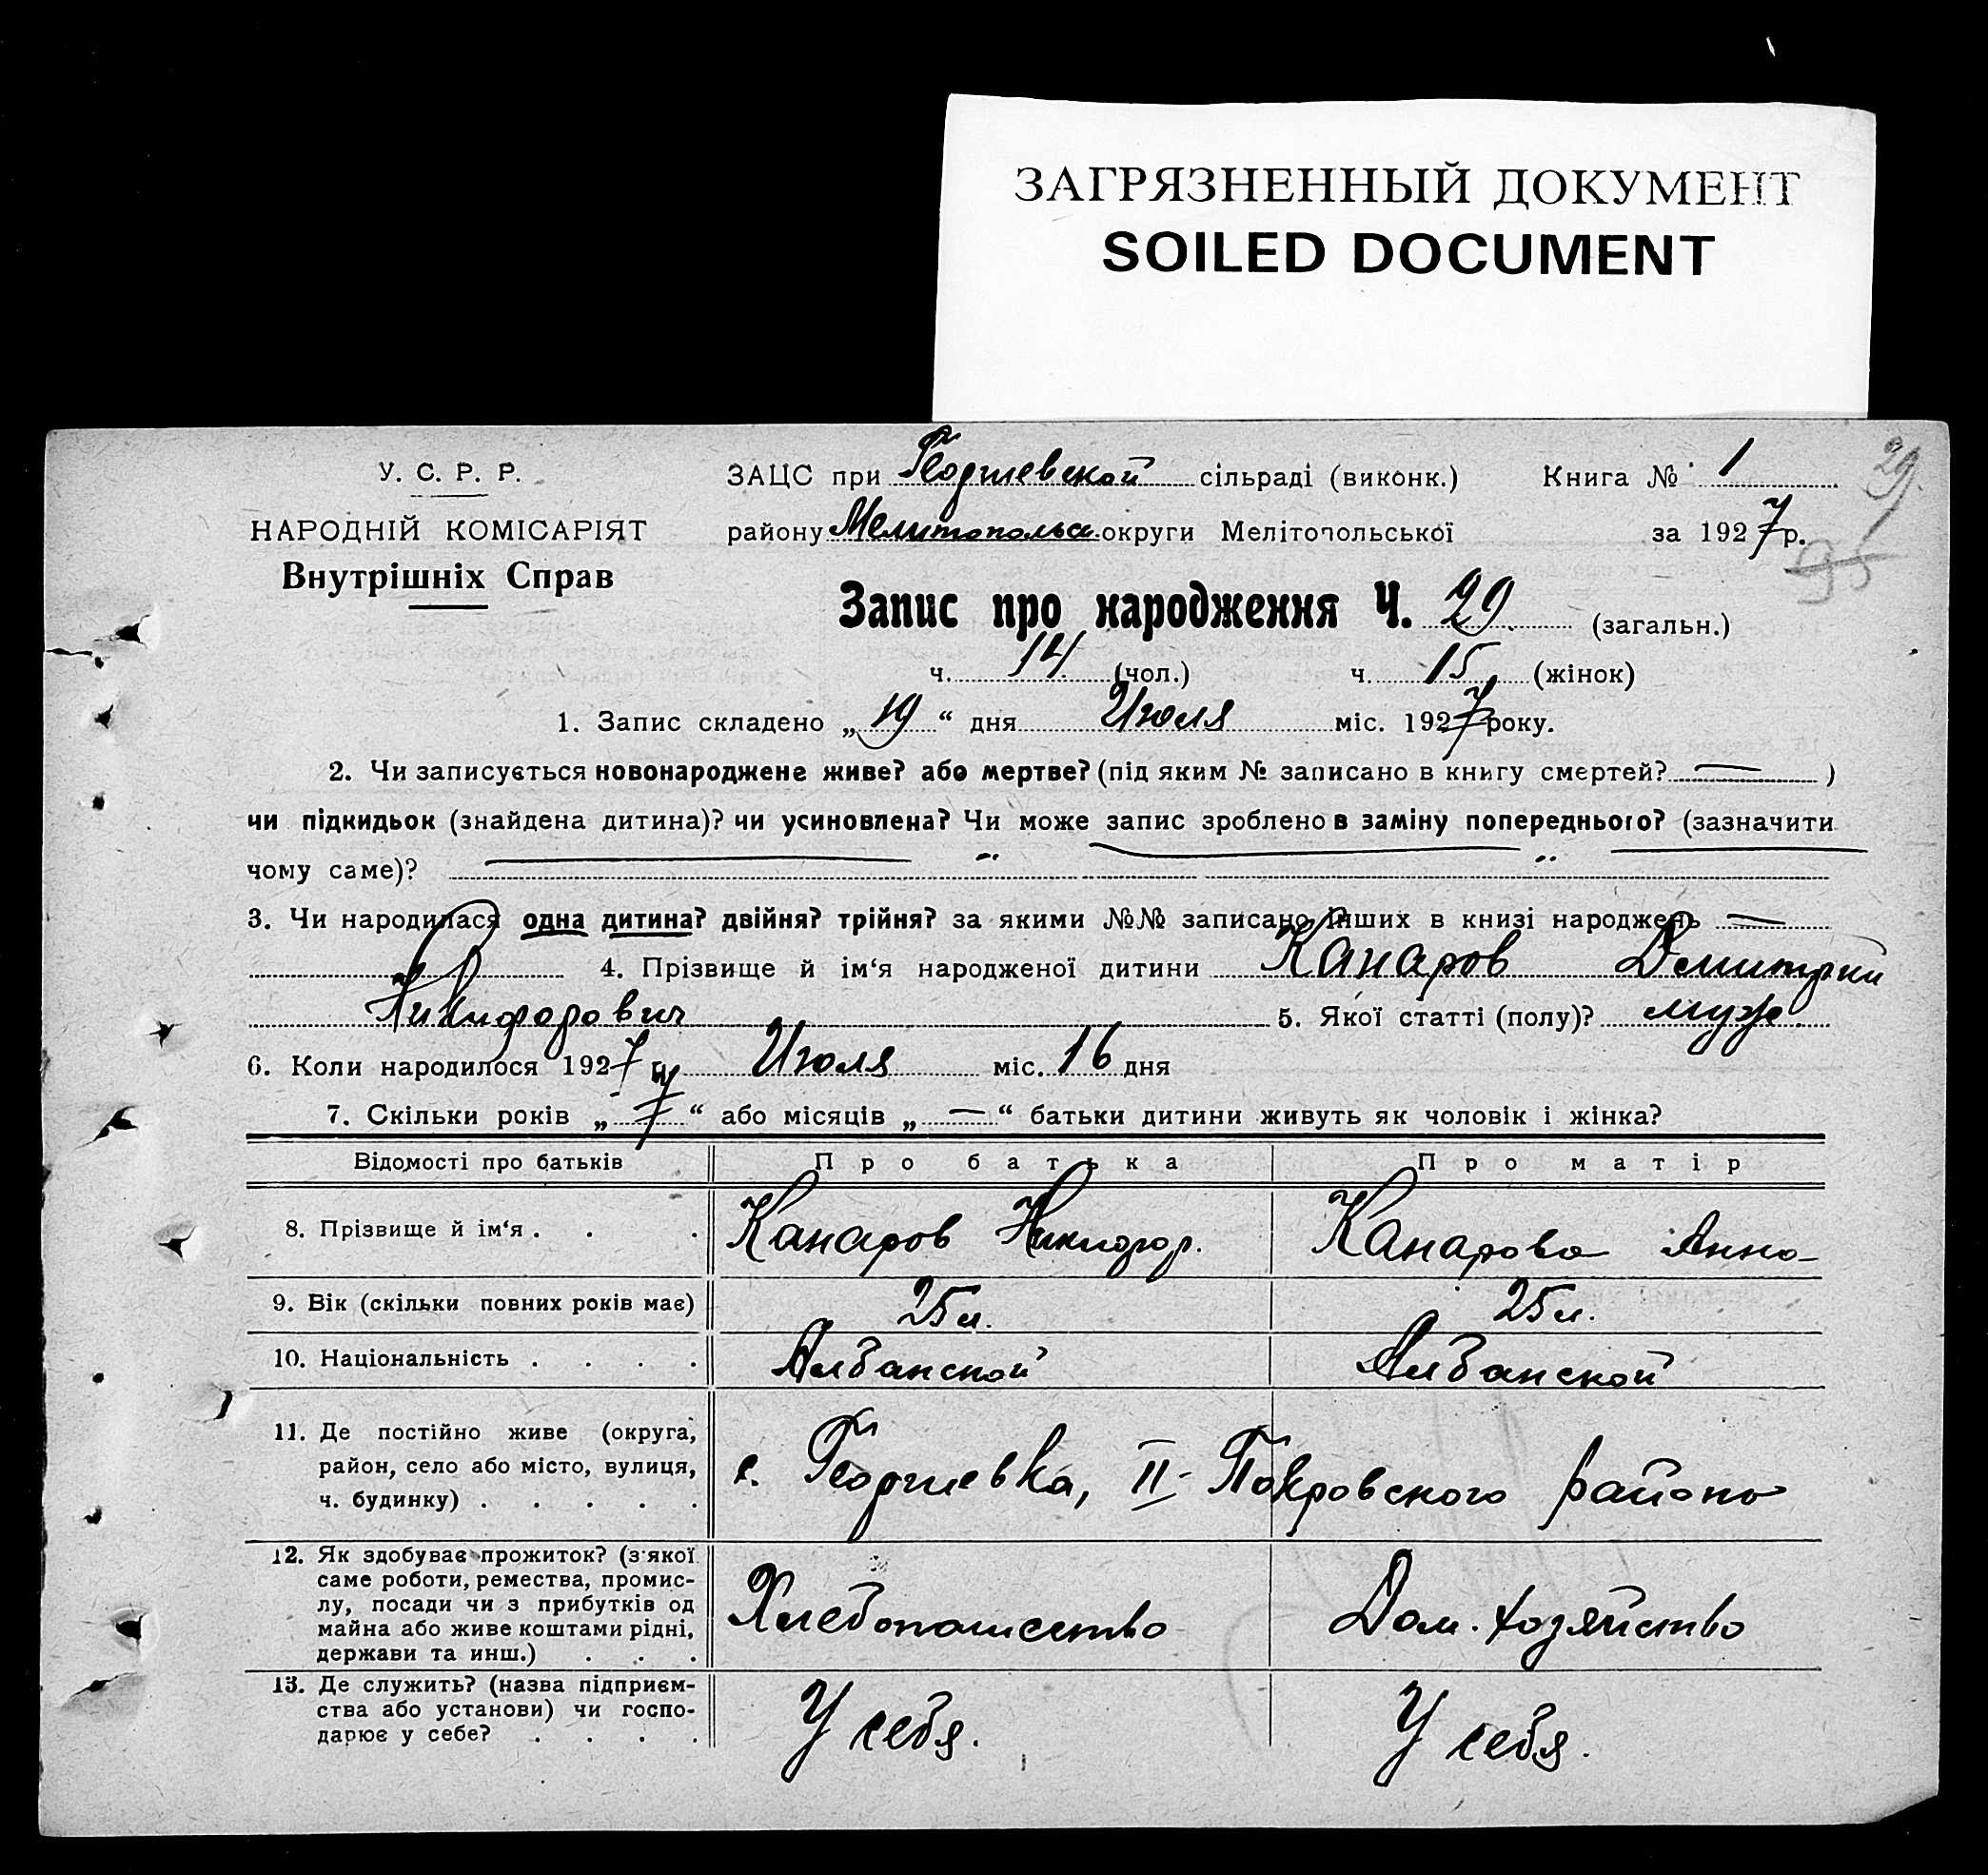 ЗАГРЯЗНЕННЫЙ ДОКУМЕНТ
SOILED DOCUMENT
29.
У. С. Р. Р. ЗАЦС при Георгиевской сільраді (виконк.) Книга № 1
НАРОДНІЙ КОМІСАРІЯТ району Мелитопольск. округи Мелітопольської за 1927 р.
95
Внутрішніх Справ
Запис про народження Ч. 29. (загальн.)
ч. 14 (чол.) ч. 15 (жінок)
1. Запис складено „19“ дня Июля міс. 1927 року.
2. Чи записується новонароджене живе? або мертве? (під яким № записано в книгу смертей? — )
чи підкидьок (знайдена дитина)? чи усиновлена? Чи може запис зроблено в заміну попереднього? (зазначити
чому саме)?
3. Чи народилася одна дитина? двійня? трійня? за якими №№ записано інших в книзі народжень —
4. Прізвище й ім‘я народженої дитини Канаров Дмитрий
Никифорович 5. Якої статті (полу)? муж.
6. Коли народилося 1927 р. Июля міс. 16 дня
7. Скільки років „7“ або місяців „—“ батьки дитини живуть як чоловік і жінка?
Відомості про батьків Про батька Про матір
8. Прізвище й ім‘я . . . Канаров Никифор. Канарова Анна
9. Вік (скільки повних років має) 25 л. 25 л.
10. Національність . . . . Албанской Албанской
11. Де постійно живе (округа,
район, село або місто, вулиця, с. Георгиевка, II-Покровского района
ч. будинку) . . . . .
12. Як здобуває прожиток? (з якої
саме роботи, ремества, промис-
лу, посади чи з прибутків од Хлебопашество Дом. хозяйство
майна або живе коштами рідні,
держави та инш.) . . .
13. Де служить? (назва підприєм-
ства або установи) чи госпо- У себя. У себя.
дарює у себе? . . . .